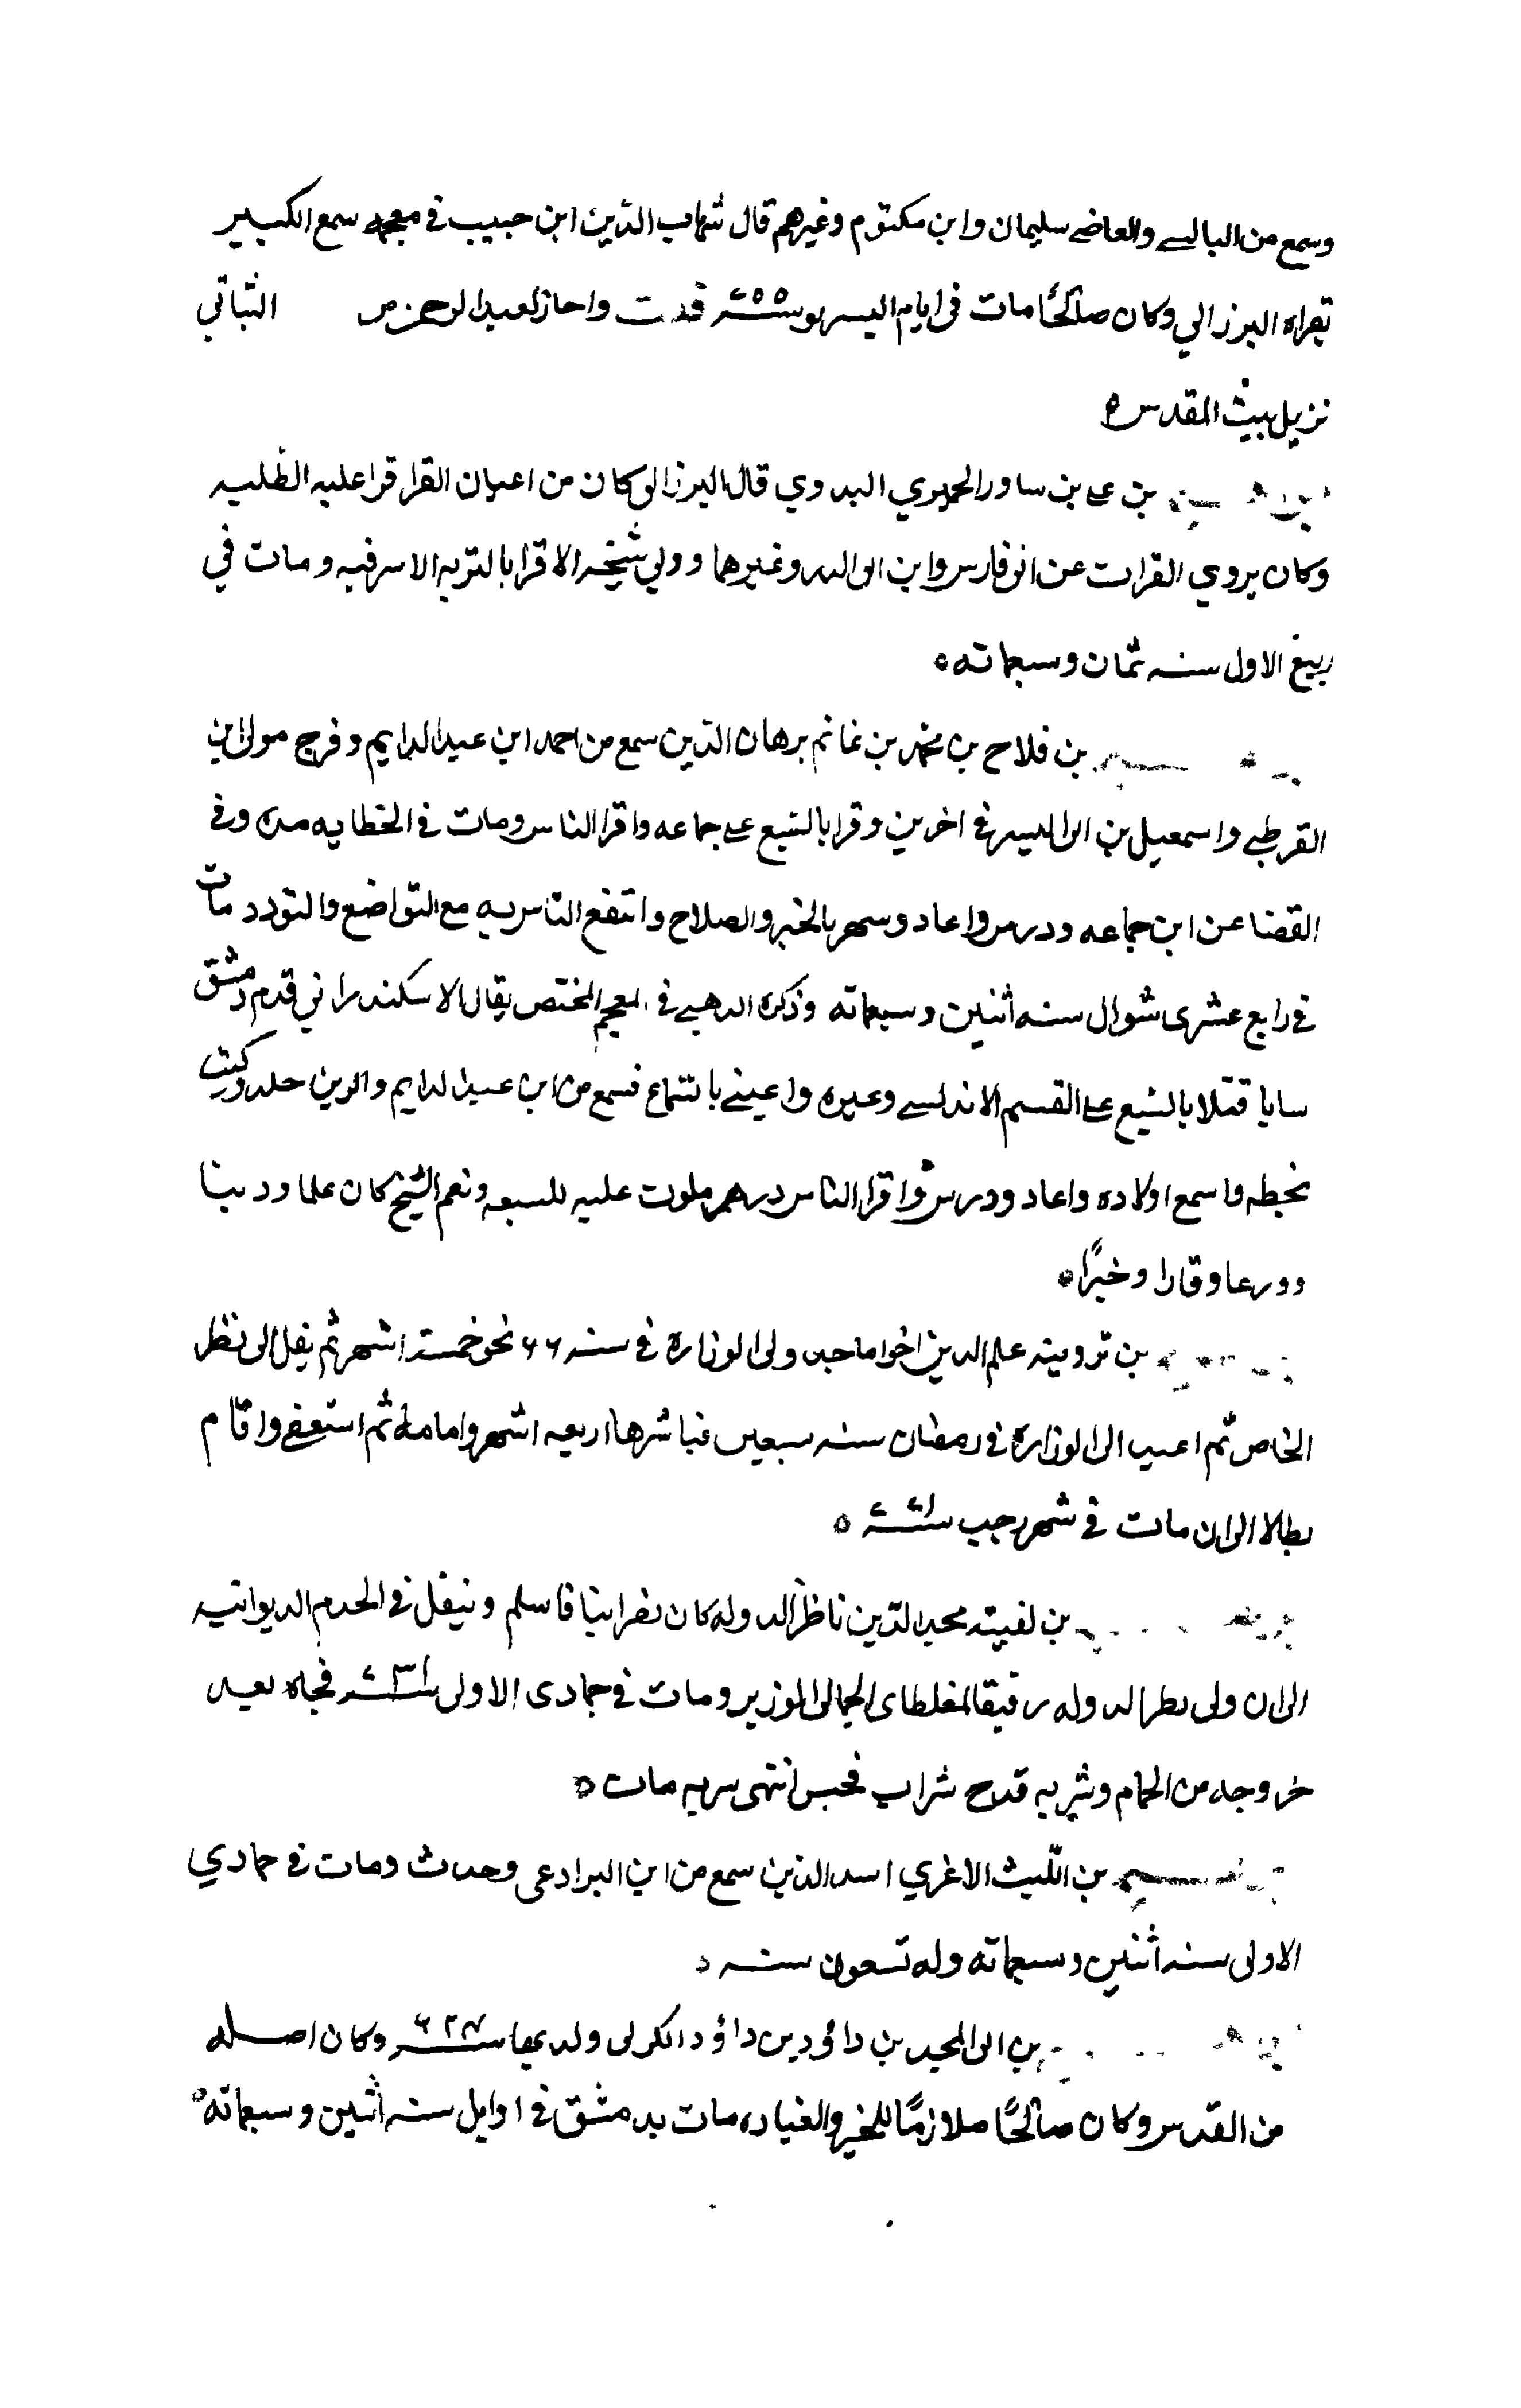 وسمع من البالسي والقاضي سليمان وابن مكتوم وغيرهم قال شهاب الدين ابن حبيب في معجمه سمع الكبير
بقراه البرزالي وكان صالحًا مات في ايام اليسر بو سنة ٧٥٥ قلت واجاز لعبد الرحمن بن التباتي
نزيل بيت المقدس ه
بن علي بن ساور الحميري البدوي قال البرزالي كان من اعيان القرا قرا عليه الطلبه
وكان يروي القرات عن ابن فارس وابن ابي الدر وغيرهما وولي مشيخه الاقرا بالتربه الاسرفيه ومات في
ربيع الاول سنه ثمان وسبعماته ه
بن فلاح بن محمد بن غانم برهان الدين سمع من احمد ابن عبد الدايم وفرج مولى ابن
القرطبي واسمعيل بن ابي اليسر في اخرين وقرا بالسبع على جماعه واقرا الناس ومات في الخطابه مده وفي
القضا عن ابن جماعه ودرس واعاد وسهر بالخير والصلاح وانتفع الناس به مع التواضع والتودد مات
في رابع عشرى شوال سنه اثنين وسبعماته وذكره الدهبي في المعجم المختص يقال الاسكندراني قدم دمشق
سابا فتلا بالسبع على القسم الاندلسي وغيره واعيني بالسماع فسمع من ابن عبد الدايم والدين خلد وكتب
بخطه واسمع اولاده واعاد ودرس واقرا الناس درهم تلوت عليه للسبعه ونعم الشيخ كان علما ودينا
وورعا وقارا وخيرًا ه
بن تروينه علم الدين اخوا ماجد ولى الوزاره في سنه ٦٦ نحو خمسة اشهر ثم نقل الى نظر
الخاص ثم اعيد الى الوزاره في رمضان سنه سبعين فباشرها اربعه اشهر واياما ثم استعفي واقام
بطالا الى ان مات في شهر رجب سنة ٧٧١ ه
بن لفيته مجد الدين ناظر الدوله كان نصرانيا فاسلم وتنقل في الخدم الديوانيه
الى ان ولى نظر الدوله رفيقا لمغلطاى الجمالى الوزير ومات في جمادى الاولى سنة ٧٣١ فجاه بعيد
خروجه من الحمام وشربه قدح شراب فحين انتهى شربه مات ه
بن الليث الاغري اسد الدين سمع من ابن البرادعى وحدث ومات في جمادي
الاولى سنه اثنين وسبعماته وله تسعون سنه ه
بن ابي المجد بن داود بن داؤد الكركى ولد بها سنة ٦٢٧ وكان اصله
من القدس وكان صالحًا ملازمًا للخير والعباده مات بدمشق في اوايل سنه اثنين وسبعماته ه